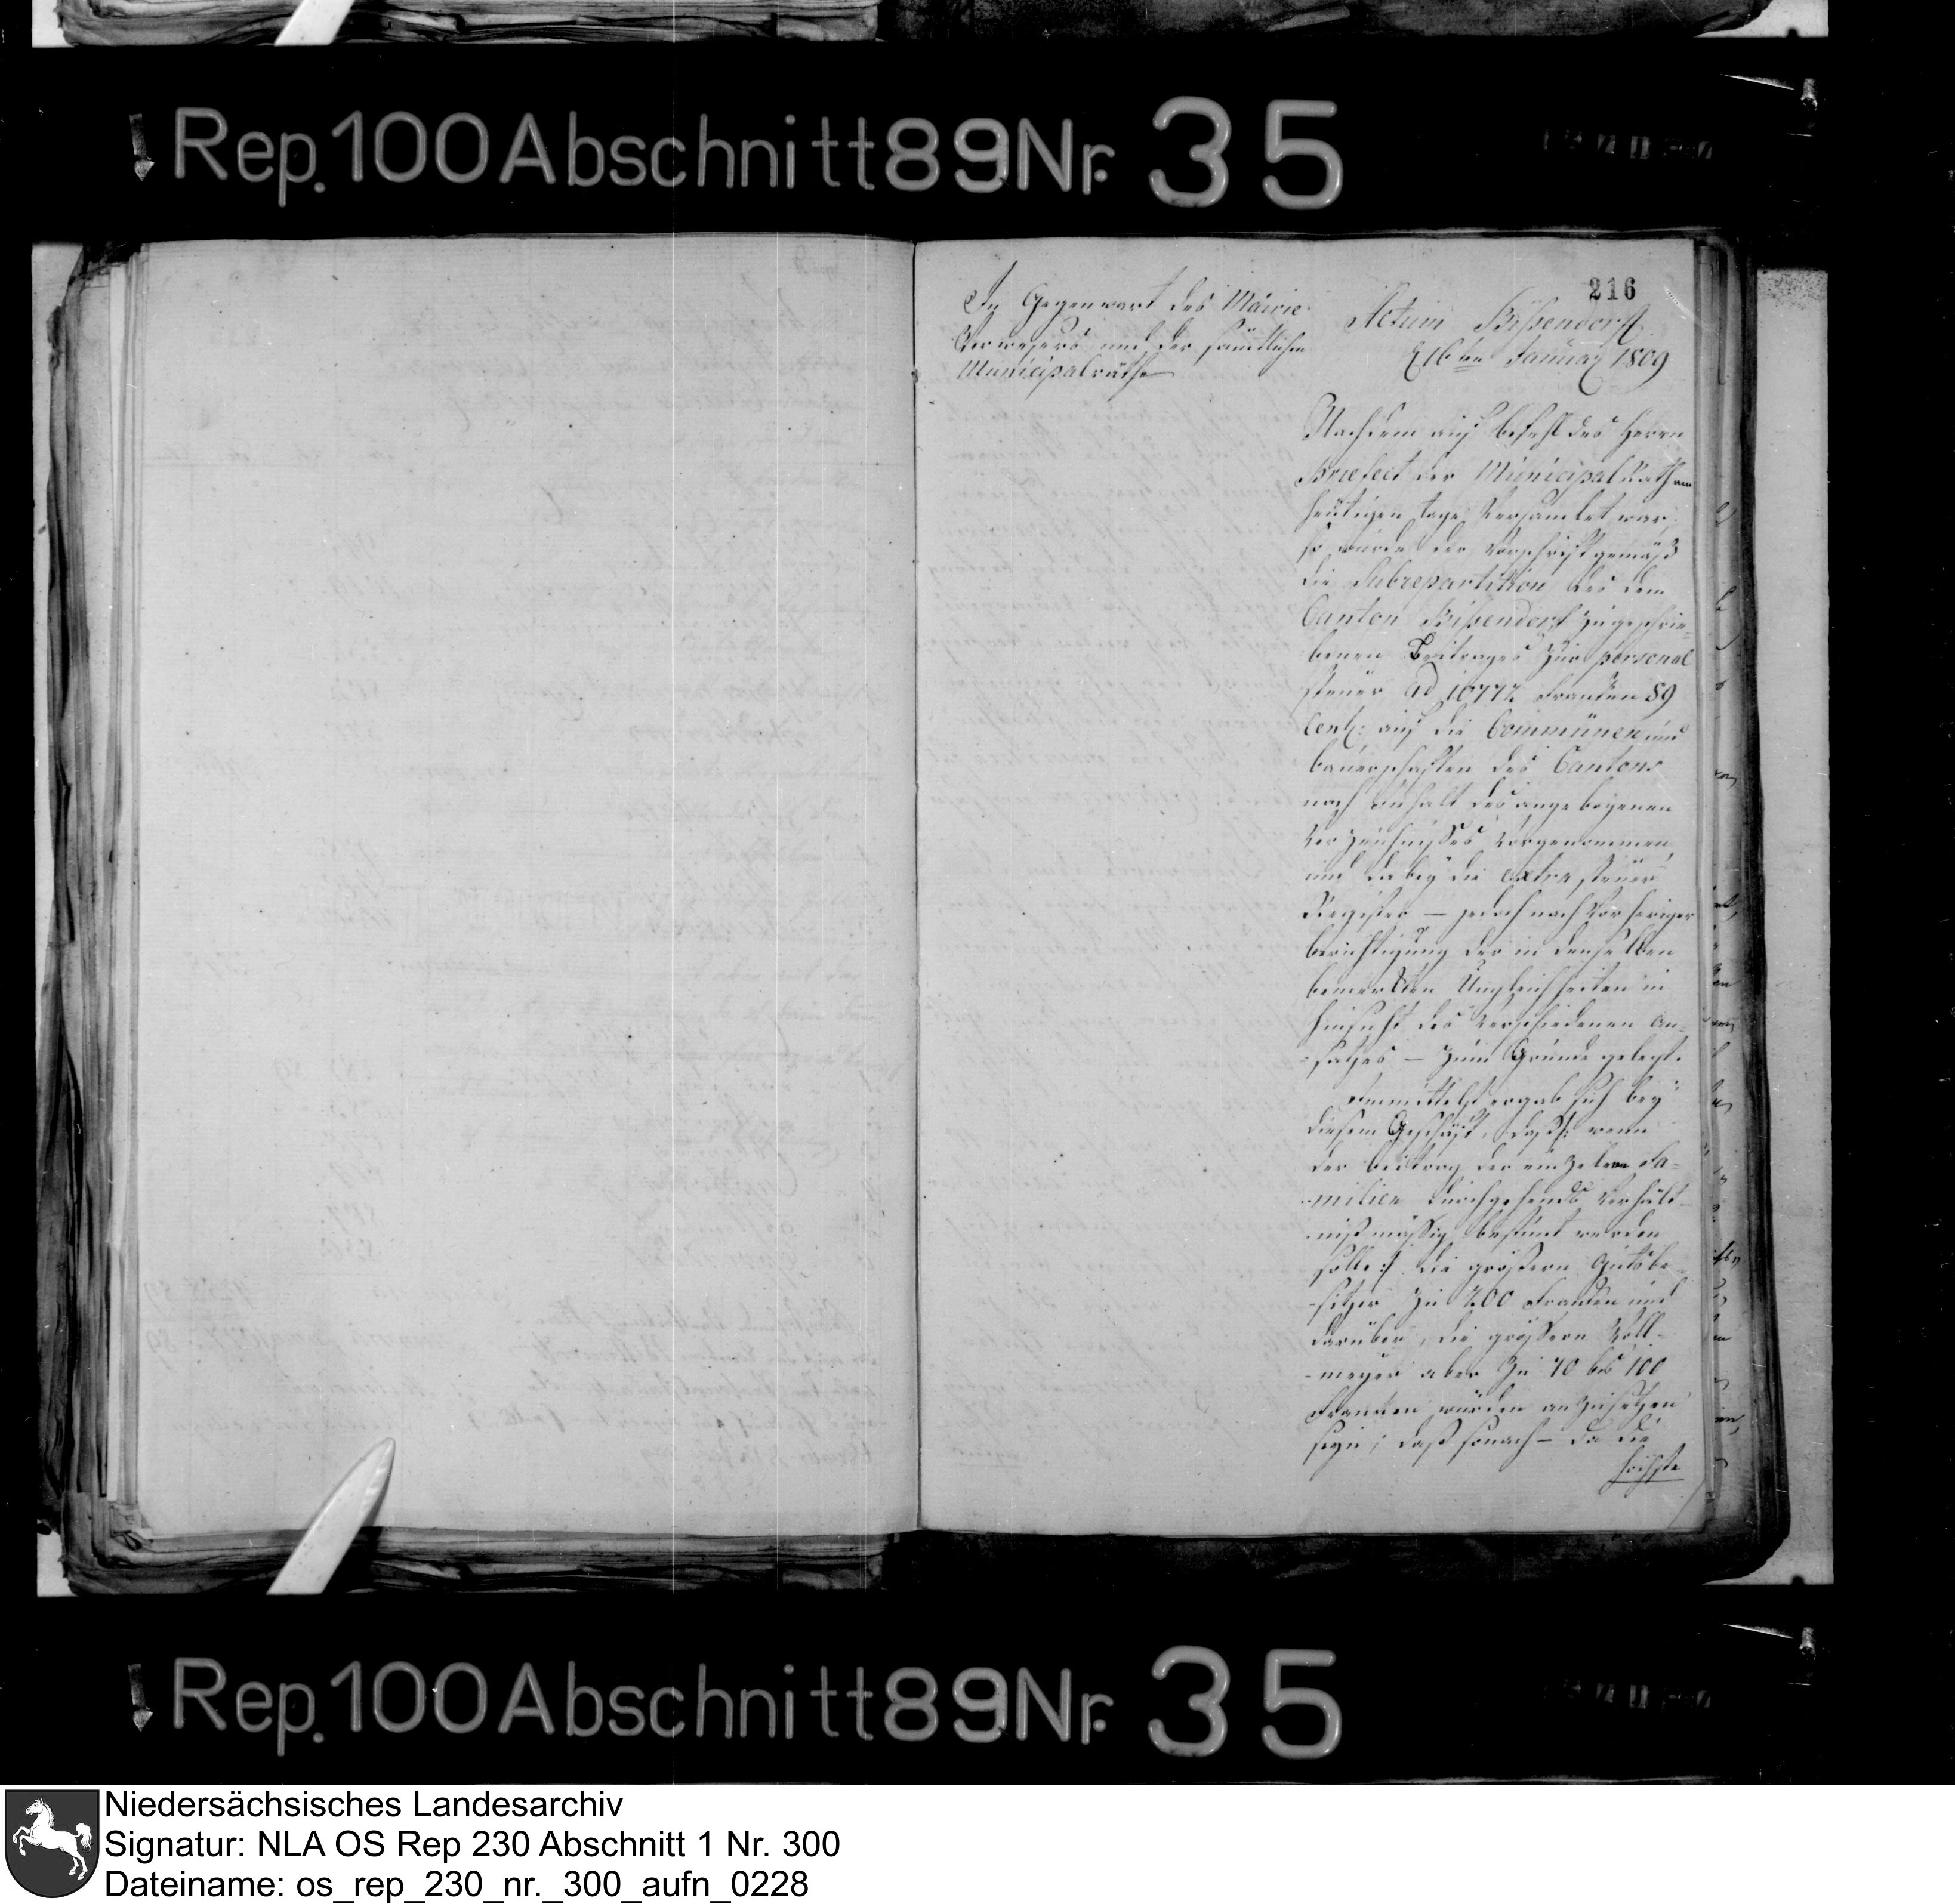 Rep. 100 Abschnitt 89 Nr. 35
216
In Gegenwart des Mairie
Verwesers und der sämtlichen
Municipalräthe
Actum Bißendorf
d 16ten Januar 1809
Nachdem auf Befehl des Herrn
Praefect der Municipal Rath am
heutigen Tage Versamlet war,
so wurde der Vorschrift gemäß
die Subrepartition des dem
Canton Bißendorf zugeschrie-
benen Beitrages zur personal
steuer ad 10772 Franken 89
Cent: auf die Communen und
bauerschaften des Cantons
nach Inhalt des angebogenen
Verzeichnißes Vorgenommen,
und dabey die extra steuer
Register — jedoch nach Vorheriger
berichtigung der in denselben
bemerkten Ungleichheiten in
hinsicht des Verschiedenen An-
-satzes — zum Grunde gelegt.
Immittelst ergab sich bey
diesem Geschäft, daß /: wenn
der beitrag der einzelnen Fa-
-milien durchgehends Verhält-
-nißmäßig bestimt werden
solle :/ die größern Gutsbe-
-sitzer zu 200 Franken und
darüber, die größern Voll-
-meyer aber zu 70 bis 100
Franken würden anzusetzen
seyn; daß sonach — da die
höchste
Rep. 100 Abschnitt 89 Nr. 35
Niedersächsisches Landesarchiv
Signatur: NLA OS Rep 230 Abschnitt 1 Nr. 300
Dateiname: os_rep_230_nr._300_aufn_0228